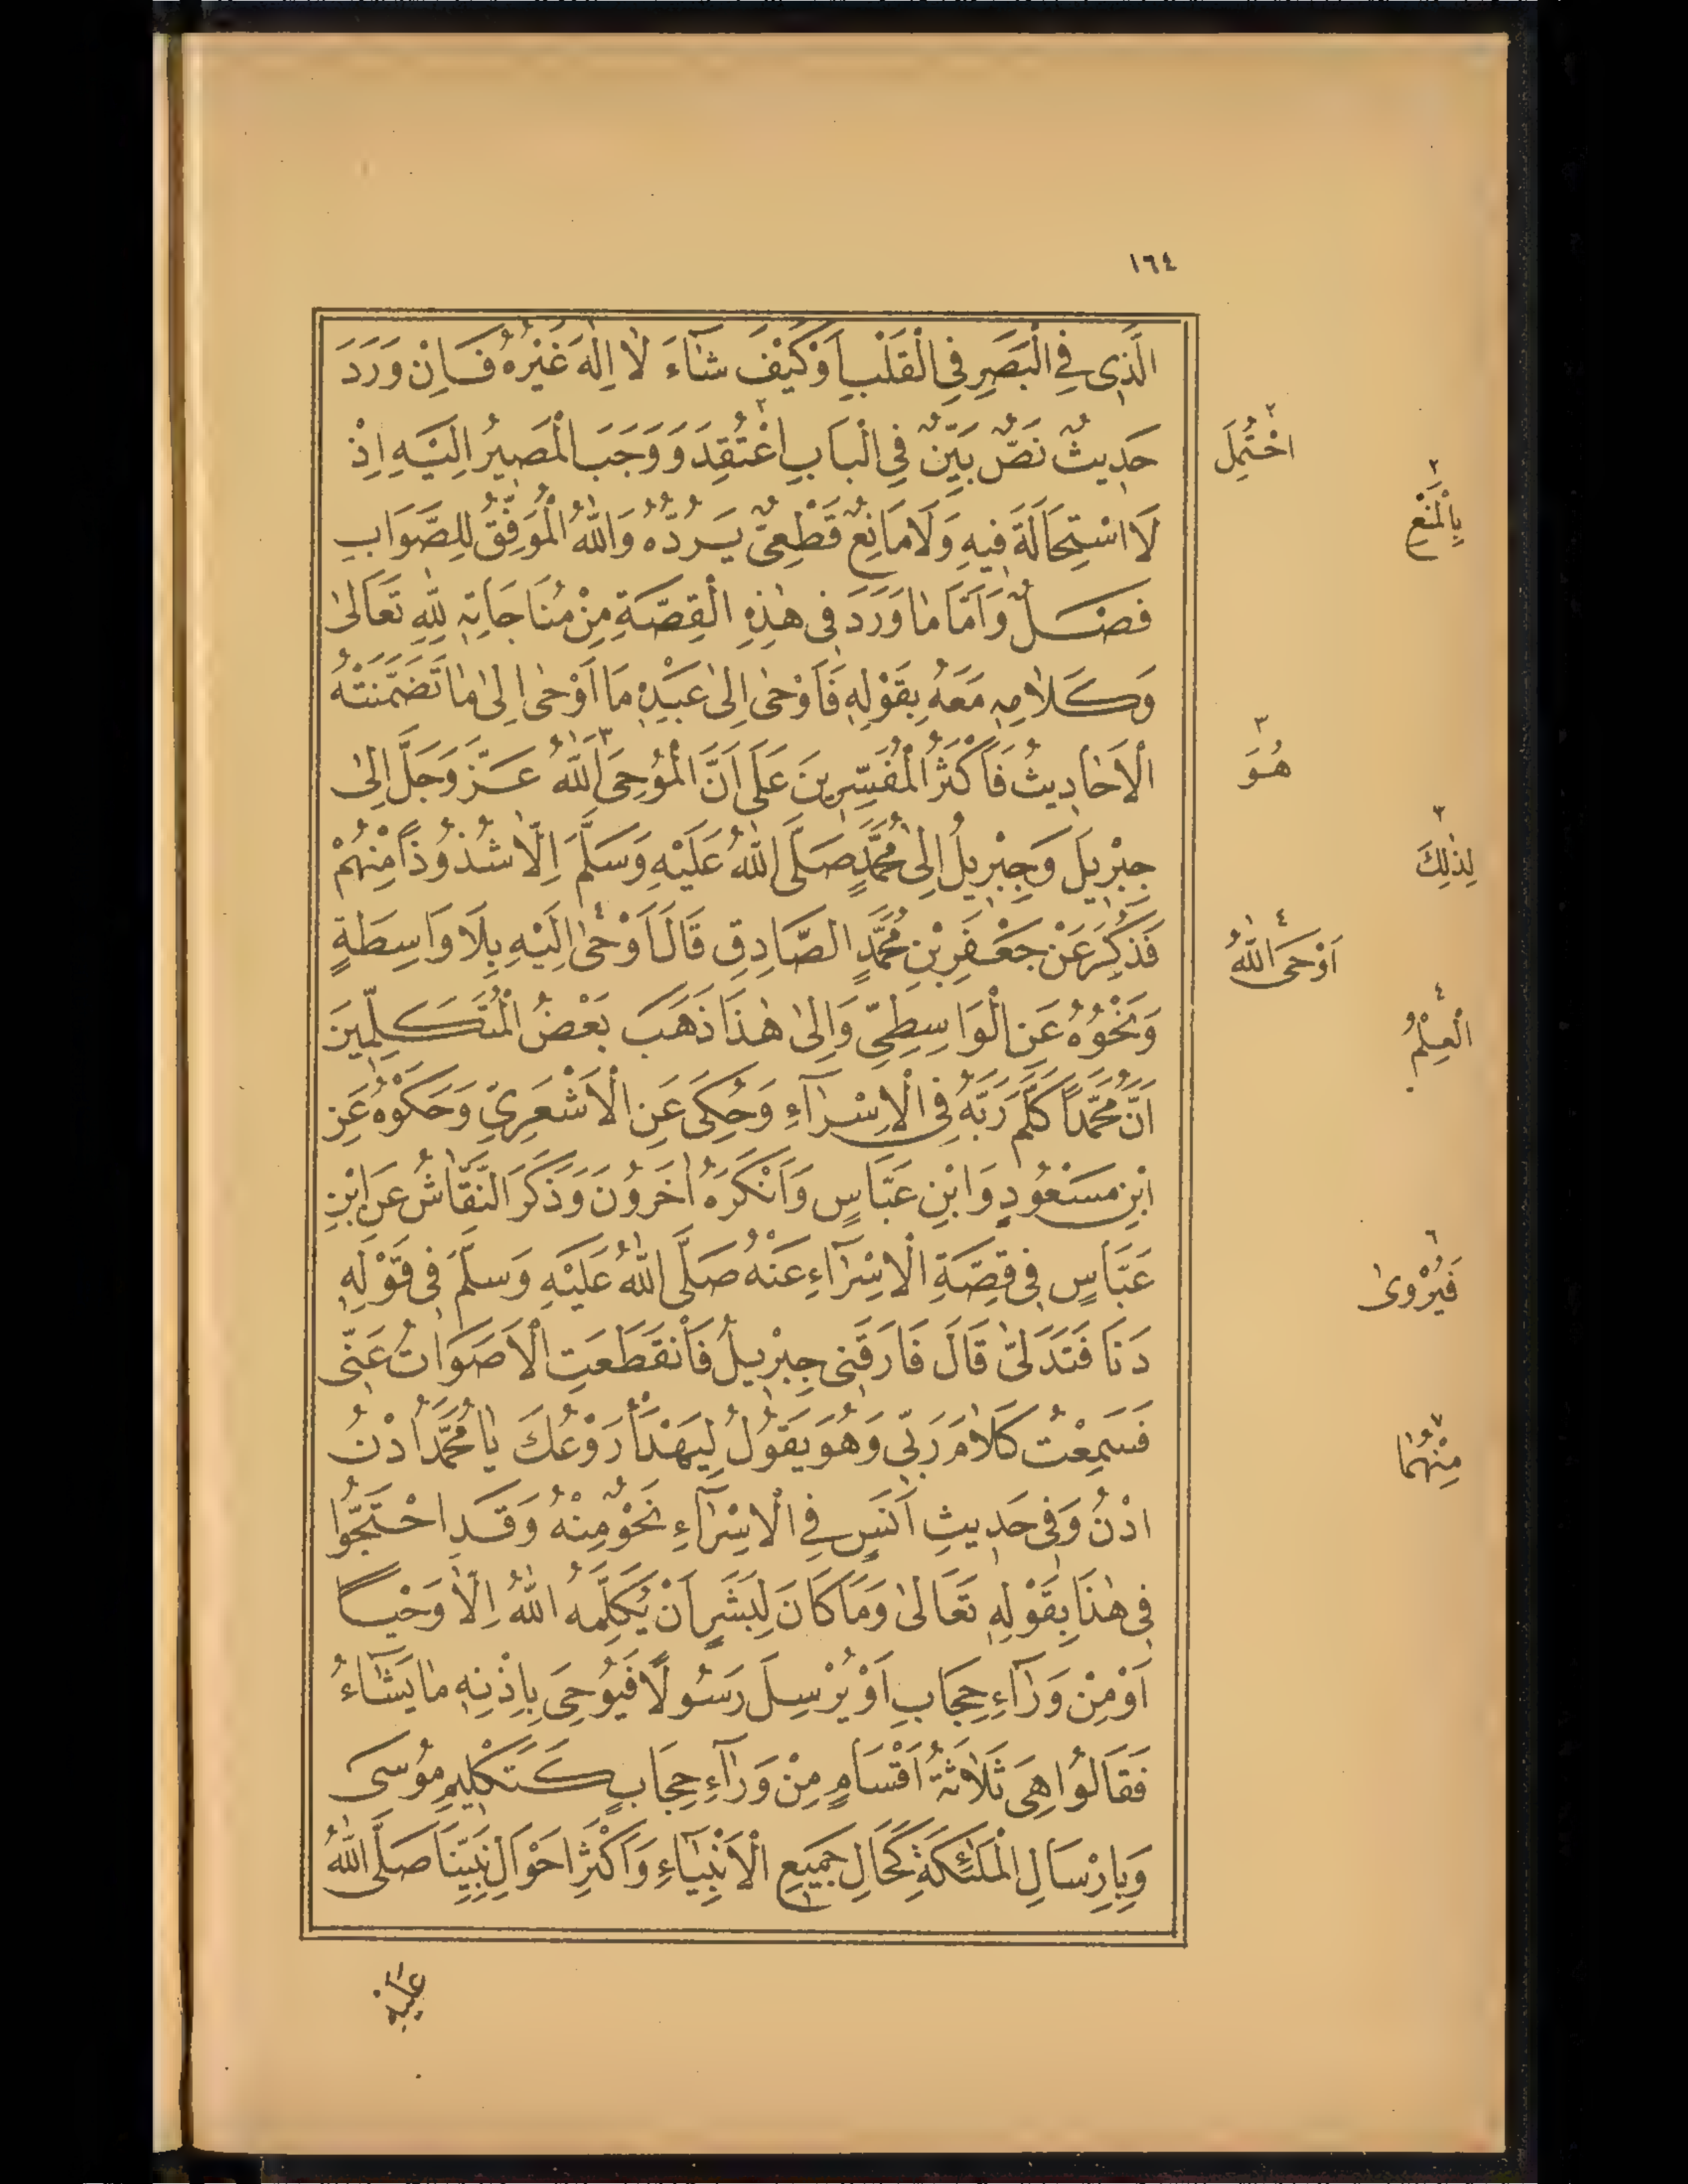 ١٦٤
الَّذِى فِى الْبَصَرِ فِى الْقَلْبِ اَوْ كَيْفَ شَاءَ لَا اِلٰهَ غَيْرُهُ فَاِنْ وَرَدَ
حَدِيثٌ نَصٌّ بَيِّنٌ فِى الْبَابِ اعْتُقِدَ٢ وَوَجَبَ الْمَصِيرُ اِلَيْهِ اِذْ
لَا اسْتِحَالَةَ فِيهِ وَلَا مَانِعٌ قَطْعِىٌّ يَرُدُّهُ وَاللّٰهُ الْمُوَفِّقُ لِلصَّوَابِ
فَصْلٌ وَاَمَّا مَا وَرَدَ فِى هٰذِهِ الْقِصَّةِ مِنْ مُنَاجَاتِهِ لِلّٰهِ تَعَالٰى
وَكَلَامِهِ مَعَهُ بِقَوْلِهِ فَاَوْحٰى اِلٰى عَبْدِهِ مَا اَوْحٰى اِلٰى مَا تَضَمَّنَتْهُ
الْاَحَادِيثُ فَاَكْثَرُ الْمُفَسِّرِينَ عَلَى اَنَّ الْمُوحِىَ٣ اللّٰهُ عَزَّ وَجَلَّ اِلٰى
جِبْرِيلَ وَجِبْرِيلُ اِلٰى مُحَمَّدٍ صَلَّى اللّٰهُ عَلَيْهِ وَسَلَّمَ اِلَّا شُذُوذًا مِنْهُمْ
فَذُكِرَ عَنْ جَعْفَرِ بْنِ مُحَمَّدٍ الصَّادِقِ قَالَ اَوْحٰى٤ اِلَيْهِ بِلَا وَاسِطَةٍ
وَنَحْوُهُ عَنِ الْوَاسِطِىِّ وَاِلٰى هٰذَا ذَهَبَ بَعْضُ الْمُتَكَلِّمِينَ
اَنَّ مُحَمَّدًا كَلَّمَ رَبَّهُ فِى الْاِسْرَآءِ وَحُكِىَ عَنِ الْاَشْعَرِىِّ وَحَكَوْهُ عَنِ
ابْنِ مَسْعُودٍ وَابْنِ عَبَّاسٍ وَاَنْكَرَهُ اٰخَرُونَ وَذَكَرَ النَّقَّاشُ عَنِ ابْنِ
عَبَّاسٍ فِى قِصَّةِ الْاِسْرَآءِ عَنْهُ صَلَّى اللّٰهُ عَلَيْهِ وَسَلَّمَ فِى قَوْلِهِ
دَنَا فَتَدَلّٰى قَالَ فَارَقَنِى جِبْرِيلُ فَانْقَطَعَتِ الْاَصْوَاتُ عَنِّى
فَسَمِعْتُ كَلَامَ رَبِّى وَهُوَ يَقُولُ لِيَهْدَأْ رَوْعُكَ يَا مُحَمَّدُ ادْنُ
ادْنُ وَفِى حَدِيثِ اَنَسٍ فِى الْاِسْرَآءِ نَحْوٌ مِنْهُ وَقَدِ احْتَجُّوا
فِى هٰذَا بِقَوْلِهِ تَعَالٰى وَمَا كَانَ لِبَشَرٍ اَنْ يُكَلِّمَهُ اللّٰهُ اِلَّا وَحْيًا
اَوْ مِنْ وَرَآءِ حِجَابٍ اَوْ يُرْسِلَ رَسُولًا فَيُوحِىَ بِاِذْنِهِ مَا يَشَآءُ
فَقَالُوا هِىَ ثَلَاثَةُ اَقْسَامٍ مِنْ وَرَآءِ حِجَابٍ كَتَكْلِيمِ مُوسَى
وَبِاِرْسَالِ الْمَلٰئِكَةِ كَحَالِ جَمِيعِ الْاَنْبِيَآءِ وَاَكْثَرِ اَحْوَالِ نَبِيِّنَا صَلَّى اللّٰهُ
عَلَيْهِ
٢ احْتُمِلَ
٢ بِالْمَنْعِ
٣ هُوَ
٣ لِذٰلِكَ
٤ اَوْحَى اللّٰهُ
٤ الْعِلْمُ
٦ فَيُرْوٰى
٧ مِنْهُمَا